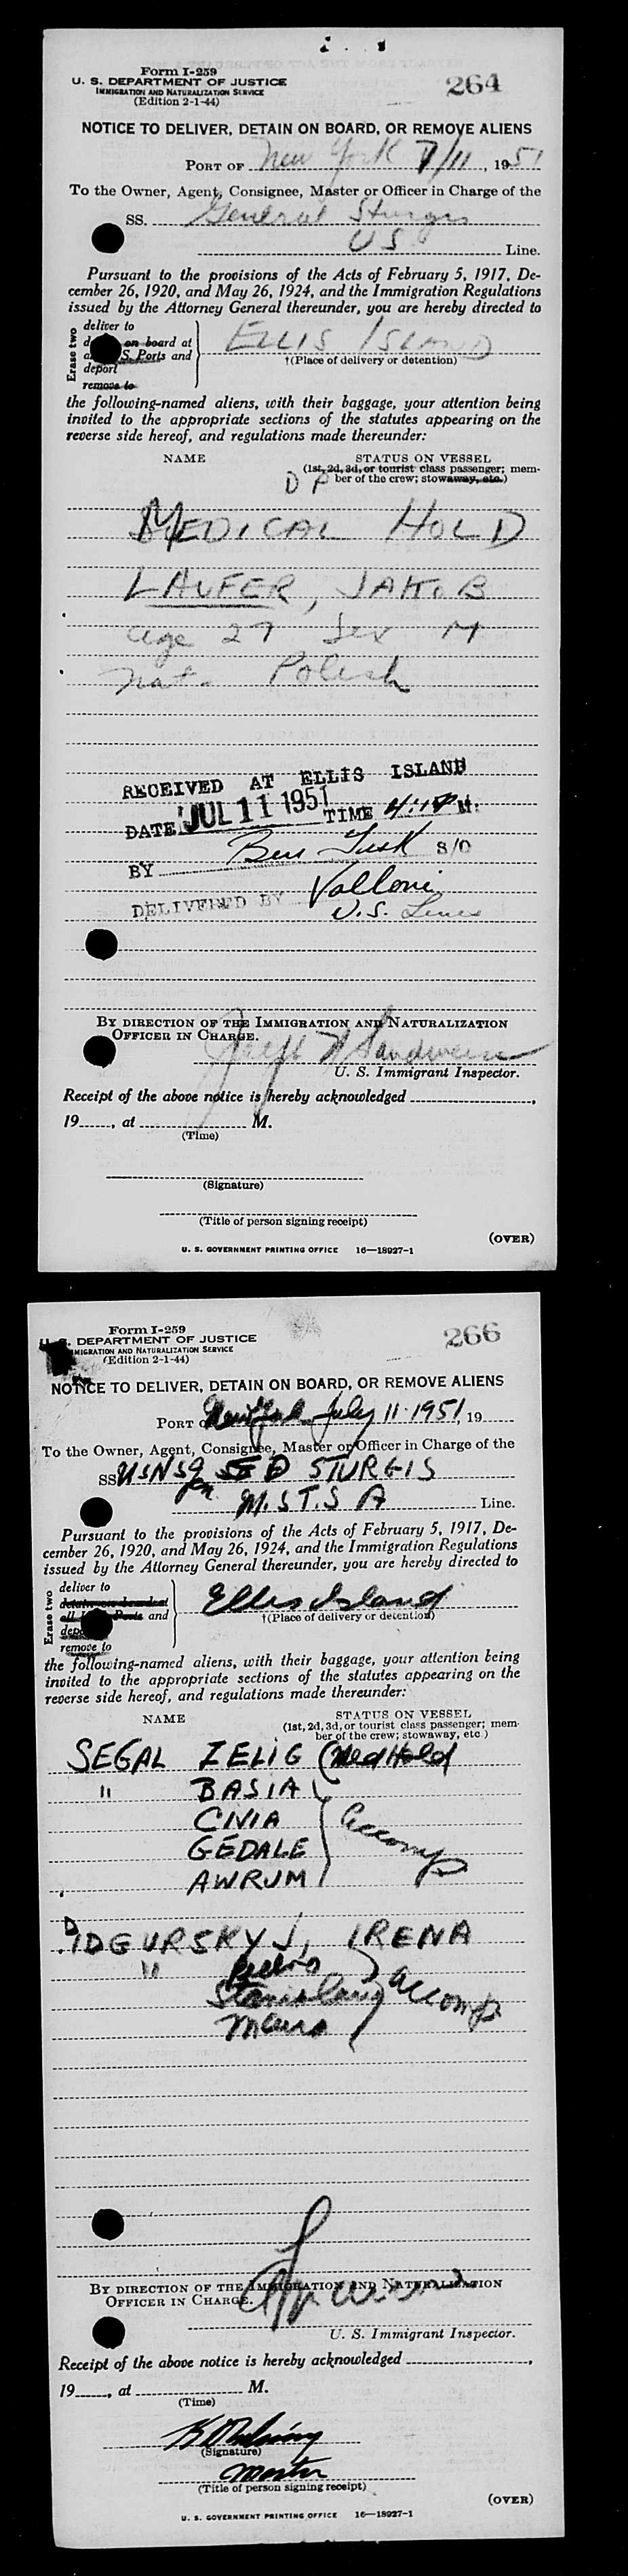 Form I-259
U. S. DEPARTMENT OF JUSTICE
IMMIGRATION AND NATURALIZATION SERVICE
(Edition 2-1-44)
264
NOTICE TO DELIVER, DETAIN ON BOARD, OR REMOVE ALIENS
PORT OF New York 7/11, 1951
To the Owner, Agent, Consignee, Master or Officer in Charge of the
SS. General Sturgis
US Line.
Pursuant to the provisions of the Acts of February 5, 1917, De-
cember 26, 1920, and May 26, 1924, and the Immigration Regulations
issued by the Attorney General thereunder, you are hereby directed to
Erase two
deliver to
on board at
S. Ports and
deport
remove to
ELLIS ISLAND
†(Place of delivery or detention)
the following-named aliens, with their baggage, your attention being
invited to the appropriate sections of the statutes appearing on the
reverse side hereof, and regulations made thereunder:
NAME STATUS ON VESSEL
(1st, 2d, 3d, or tourist class passenger; mem-
DP ber of the crew; stowaway, etc.)
MEDICAL HOLD
LAUFER, JAKOB
age 27 Sex M
nat. Polish
RECEIVED AT ELLIS ISLAND
DATE JUL 11 1951 TIME 4:10 P M.
BY Ben Tusk S/O
DELIVERED BY Valloni
U.S. Lines
BY DIRECTION OF THE IMMIGRATION AND NATURALIZATION
OFFICER IN CHARGE.
U. S. Immigrant Inspector.
Receipt of the above notice is hereby acknowledged,
19, at M.
(Time)
(Signature)
(Title of person signing receipt)
(OVER)
U. S. GOVERNMENT PRINTING OFFICE 16—18927-1
Form I-259
U. S. DEPARTMENT OF JUSTICE
IMMIGRATION AND NATURALIZATION SERVICE
(Edition 2-1-44)
266
NOTICE TO DELIVER, DETAIN ON BOARD, OR REMOVE ALIENS
PORT OF New York July 11 1951, 19
To the Owner, Agent, Consignee, Master or Officer in Charge of the
SS. STURGIS
M.S.T.S A Line.
Pursuant to the provisions of the Acts of February 5, 1917, De-
cember 26, 1920, and May 26, 1924, and the Immigration Regulations
issued by the Attorney General thereunder, you are hereby directed to
Erase two
deliver to
detain on board at
all U. S. Ports and
deport
remove to
Ellis Island
†(Place of delivery or detention)
the following-named aliens, with their baggage, your attention being
invited to the appropriate sections of the statutes appearing on the
reverse side hereof, and regulations made thereunder:
NAME STATUS ON VESSEL
(1st, 2d, 3d, or tourist class passenger; mem-
ber of the crew; stowaway, etc.)
SEGAL ZELIG (Med Hold
" BASIA
CIVIA accomp
GEDALE
AWRUM
IRENA
"
Stanislaus accomp
BY DIRECTION OF THE IMMIGRATION AND NATURALIZATION
OFFICER IN CHARGE.
U. S. Immigrant Inspector.
Receipt of the above notice is hereby acknowledged,
19, at M.
(Time)
(Signature)
Master
(Title of person signing receipt)
(OVER)
U. S. GOVERNMENT PRINTING OFFICE 16—18927-1